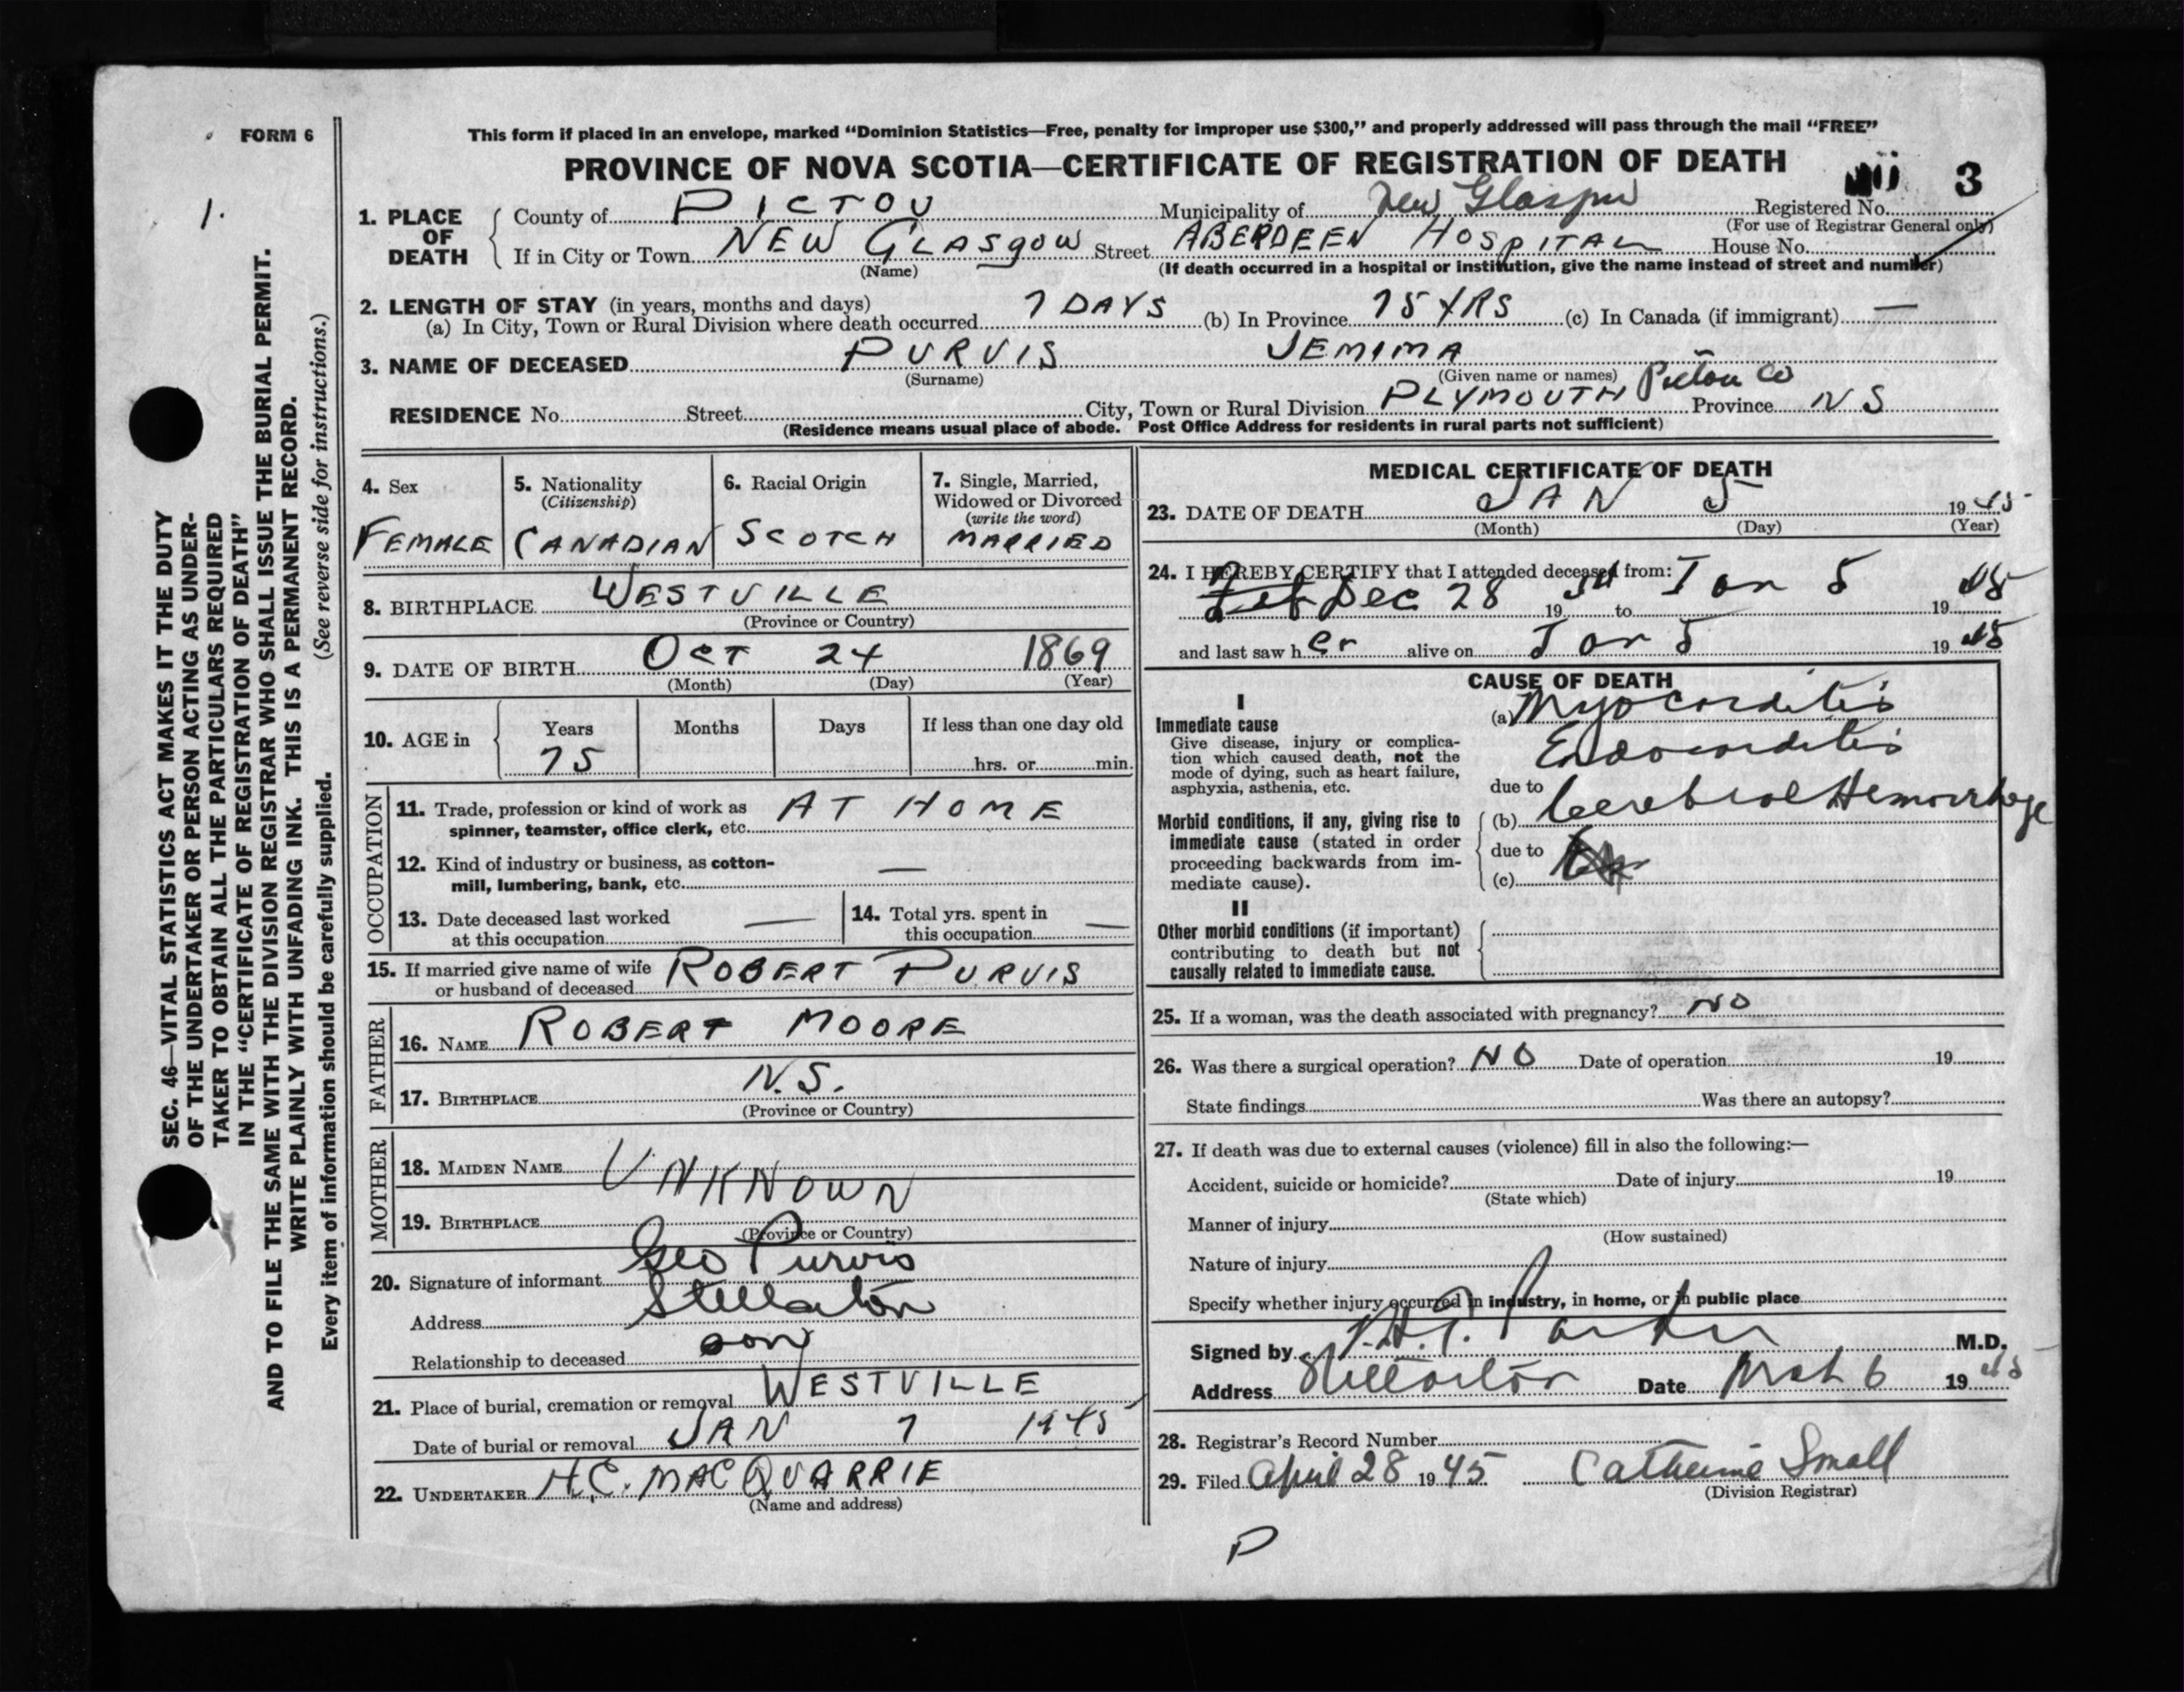 FORM 6
1.
This form if placed in an envelope, marked “Dominion Statistics—Free, penalty for improper use $300,” and properly addressed will pass through the mail “FREE”
PROVINCE OF NOVA SCOTIA—CERTIFICATE OF REGISTRATION OF DEATH
3
1. PLACE OF DEATH
County of PICTOU Municipality of New Glasgow Registered No.
(For use of Registrar General only)
If in City or Town NEW GLASGOW Street ABERDEEN HOSPITAL House No.
(Name) (If death occurred in a hospital or institution, give the name instead of street and number)
2. LENGTH OF STAY (in years, months and days)
(a) In City, Town or Rural Division where death occurred 7 DAYS (b) In Province 75 YRS (c) In Canada (if immigrant) —
3. NAME OF DECEASED PURVIS JEMIMA
(Surname) (Given name or names)
RESIDENCE No. Street City, Town or Rural Division PLYMOUTH Pictou Co Province N S
(Residence means usual place of abode. Post Office Address for residents in rural parts not sufficient)
4. Sex
FEMALE
5. Nationality
(Citizenship)
CANADIAN
6. Racial Origin
SCOTCH
7. Single, Married,
Widowed or Divorced
(write the word)
MARRIED
8. BIRTHPLACE WESTVILLE
(Province or Country)
9. DATE OF BIRTH OCT 24 1869
(Month) (Day) (Year)
10. AGE in
Years Months Days If less than one day old
75 hrs. or min.
OCCUPATION
11. Trade, profession or kind of work as
spinner, teamster, office clerk, etc. AT HOME
12. Kind of industry or business, as cotton-
mill, lumbering, bank, etc. —
13. Date deceased last worked
at this occupation —
14. Total yrs. spent in
this occupation —
15. If married give name of wife
or husband of deceased ROBERT PURVIS
FATHER
16. NAME ROBERT MOORE
17. BIRTHPLACE N.S.
(Province or Country)
MOTHER
18. MAIDEN NAME UNKNOWN
19. BIRTHPLACE
(Province or Country)
20. Signature of informant Geo Purvis
Address Stellarton
Relationship to deceased son
21. Place of burial, cremation or removal WESTVILLE
Date of burial or removal JAN 7 1945
22. UNDERTAKER H.C. MACQUARRIE
(Name and address)
MEDICAL CERTIFICATE OF DEATH
23. DATE OF DEATH JAN 5 1945
(Month) (Day) (Year)
24. I HEREBY CERTIFY that I attended deceased from:
Dec 28 19 to Jan 5 1945
and last saw her alive on Jan 5 1945
CAUSE OF DEATH
I
Immediate cause
Give disease, injury or complica-
tion which caused death, not the
mode of dying, such as heart failure,
asphyxia, asthenia, etc.
(a) Myocarditis
Endocarditis
due to
Morbid conditions, if any, giving rise to
immediate cause (stated in order
proceeding backwards from im-
mediate cause).
(b) Cerebral Hemorrhage
due to
(c)
II
Other morbid conditions (if important)
contributing to death but not
causally related to immediate cause.
25. If a woman, was the death associated with pregnancy? NO
26. Was there a surgical operation? NO Date of operation 19
State findings Was there an autopsy?
27. If death was due to external causes (violence) fill in also the following:—
Accident, suicide or homicide? Date of injury 19
(State which)
Manner of injury
(How sustained)
Nature of injury
Specify whether injury occurred in industry, in home, or in public place
Signed by M.D.
Address Stellarton Date Mch 6 1945
28. Registrar's Record Number
29. Filed April 28 1945 Catherine Small
(Division Registrar)
P
SEC. 46—VITAL STATISTICS ACT MAKES IT THE DUTY
OF THE UNDERTAKER OR PERSON ACTING AS UNDER-
TAKER TO OBTAIN ALL THE PARTICULARS REQUIRED
IN THE “CERTIFICATE OF REGISTRATION OF DEATH”
AND TO FILE THE SAME WITH THE DIVISION REGISTRAR WHO SHALL ISSUE THE BURIAL PERMIT.
WRITE PLAINLY WITH UNFADING INK. THIS IS A PERMANENT RECORD.
Every item of information should be carefully supplied. (See reverse side for instructions.)